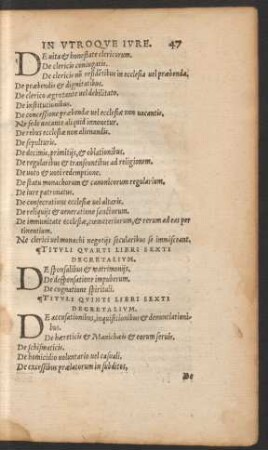 IN VTROQVE IVRE. 47
DE vita & honestate clericorum.
De clericis coniugatis.
De clericis nõ residẽtibus in ecclesia uel præbenda,
De præbendis & dignitatibus.
De clerico ægrotante uel debilitato.
De institutionibus.
De concessione præbendæ uel ecclesiæ non uacantis,
Ne sede uacante aliquid innouetur.
De rebus ecclesiæ non alienandis.
De sepulturis.
De decimis, primitijs, & oblationibus.
De regularibus & transeuntibus ad religionem.
De uoto & uoti redemptione.
De statu monachorum & canonicorum regularium,
De iure patronatus.
De consecratione ecclesiæ uel altaris.
De reliquijs & ueneratione sanctorum.
De immunitate ecclesiæ, cœmeteriorum, & rerum ad eas per
tinentium.
Ne clerici uel monachi negotijs secularibus se immisceant.
¶TITVLI QVARTI LIBRI SEXTI
DECRETALIVM.
DE sponsalibus & matrimonijs,
De desponsatione impuberum,
De cognatione spirituali.
¶TITVLI QVINTI LIBRI SEXTI
DECRETALIVM.
DE accusationibus, inquisitionibus & denunciationi-
bus.
De hæreticis & Manichæis & eorum seruis,
De schismaticis.
De homicidio voluntario uel casuali.
De excessibus prælatorum in subditos,
De